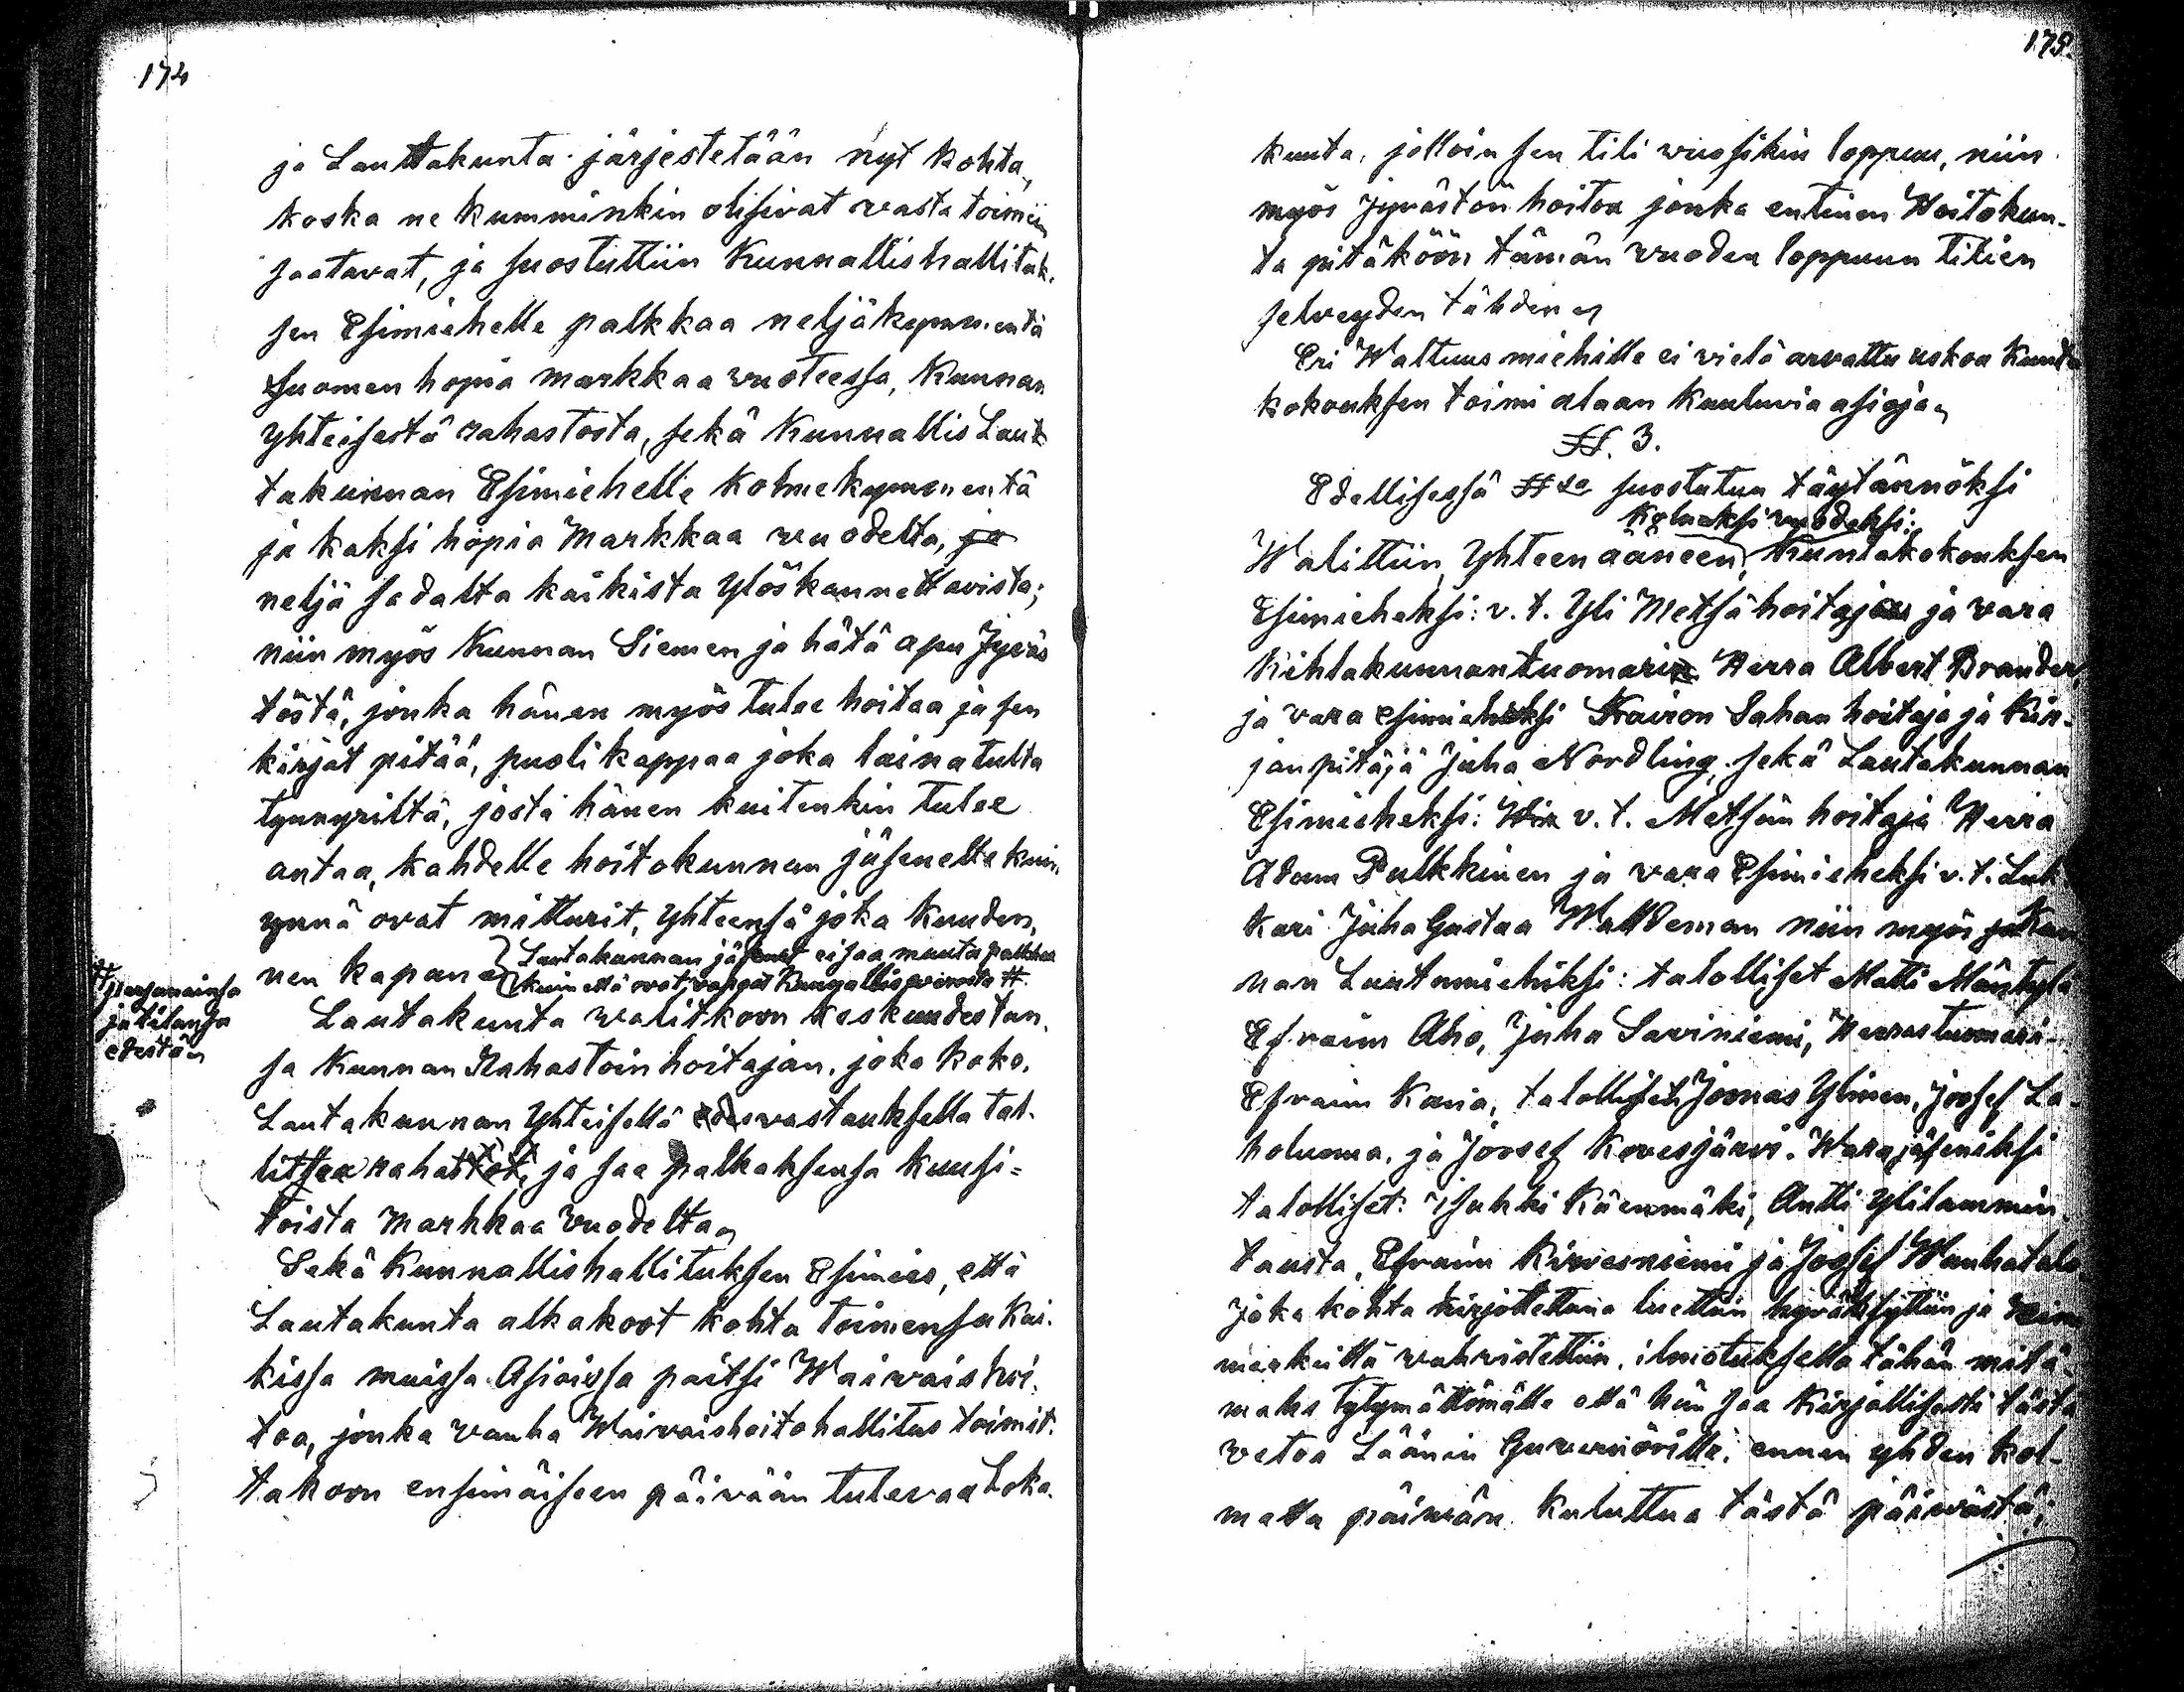 174
ja Lauttakunta järjestetään nyt kohta,
koska ne kumminkin olisivat vasta toimiin
saatavat, ja suostuttiin Kunnallishallituk-
sen Esimiehelle palkkaa neljäkymmentä
Suomen hopia markkaa vuoteessa, Kunnan
yhteisestä rahastosta, sekä Kunnallis Laut
takunnan Esimiehelle kolmekymmentä
ja kaksi hopia Markkaa vuodelta, ja
neljä sadalta kaikista ylöskannettavista;
niin myös Kunnan Siemen ja hätä apu Jyväs
töstä, jonka hänen myös tulee hoitaa ja sen
kirjat pitää, puoli kappaa joka lainatulta
tynnyriltä, josta hänen kuitenkin tulee
antaa, kahdelle hoitokunnan jäsenelle kuin
ynnä ovat mitturit, yhteensä joka kuuden,
nen kapan
Lautakunnan jäsenet ei saa muuta palkkaa
kuin että ovat vapaat Kunnallis verosta #.
# personainsa
ja tilansa
edestä
Lautakunta valitkoon keskuudestan,
sa Kunnan Rahastoin hoitajan, joka koko,
Lautakunnan yhteisellä edesvastauksella tal-
littee rahastot, ja saa palkaksensa kuusi-
toista Markkaa vuodelta
Sekä Kunnallishallituksen Esimies, että
Lautakunta alkakoot kohta toimensa kai-
kissa muissa Asioissa paitsi Waivaishoi-
toa, jonka vanha Waivaishoitohallitus toimit-
takoon ensimäiseen päivään tulevaa Loka-
175.
kuuta, jolloin sen tili vuosikin loppuu, niin
myös Jyvästön hoitoa jonka entinen Hoitokun-
ta pitäköön tämän vuoden loppuun tilien
selveyden tähden
Eri Waltuus miehille ei vielä arvattu uskoa Kunta
kokouksen toimi alaan kuuluvia asioja
§§. 3.
Edellisessä §§ssa suostutun täytännöksi
Kolmeksi vuodeksi:
Walittiin Yhteen ääneen, Kuntakokouksen
Esimieheksi: v. t. Yli Metsähoitaja ja vara
Kihlakunnantuomari Herra Albert Brander,
ja vara esimieheksi Kairon Sahan hoitaja ja Kir-
janpitäjä Juha Nordling, sekä Lautakunnan
Esimieheksi: v. t. Metsän hoitaja Herra
Adam Pulkkinen ja vara Esimieheksi v. t. Luk
kari Juha Gustaa Walldeman niin myös
nan Lautamiehiksi: talolliset Matti Mäntylä
Efraim Aho, Juha Saviniemi, Herrastuomari
Efraim Karia, talolliset Joonas Ylinen, Joosef La-
holuoma, ja Joosef Kovesjärvi. Warajäseniksi
talolliset: Isakki Käenmäki, Antti Ylilammin
tausta, Efraim Kirvesniemi ja Joosef Wanhatalo
Joka kohta kirjotettuna luettiin hyväksyttiin ja
merkillä vahvistettiin, ilmotuksella tähän
mahs tytymättömälle että hän saa kirjallisesti tästä
vetoa Läänin Guvernörille, ennen yhden kol-
matta päivän kuluttua tästä päivästä;